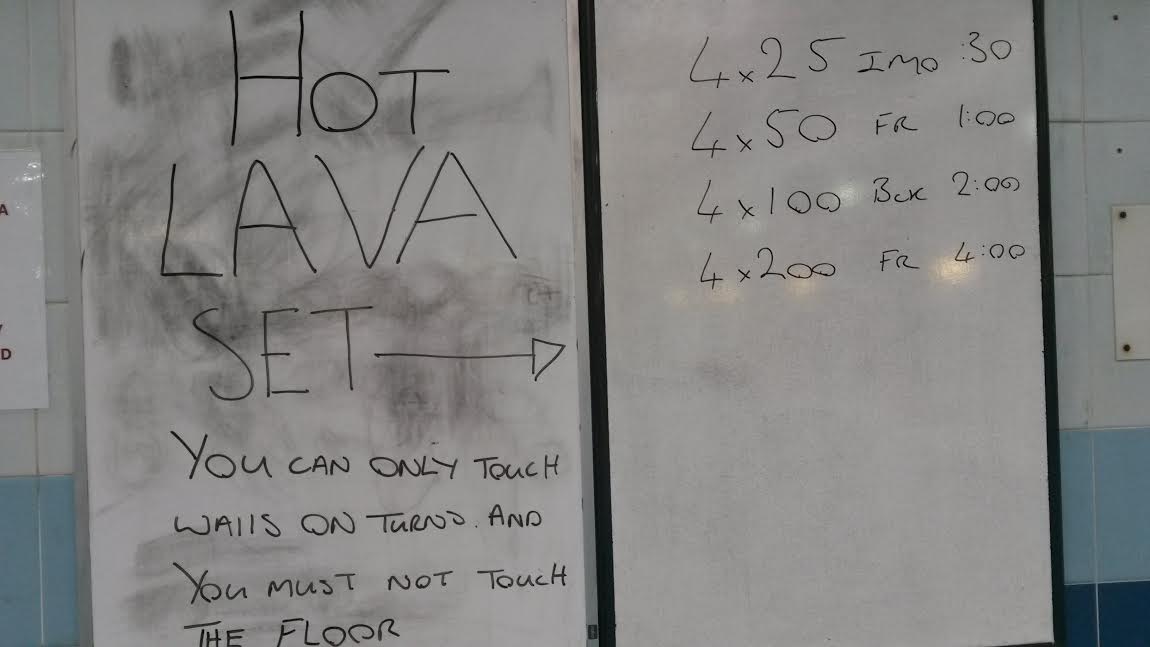 HOT
LAVA
SET
YOU CAN ONLY TOUCH
WALLS ON TURNS. AND
YOU MUST NOT TOUCH
THE FLOOR
4 x 25 IMO :30
4 x 50 FR 1:00
4 x 100 BCK 2:00
4 x 200 FR 4:00
A
Y
D